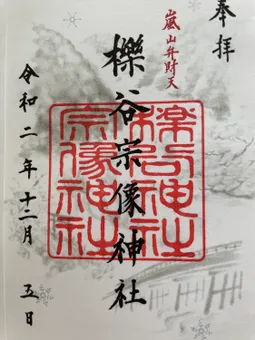 奉拝
嵐山弁財天
櫟谷宗像神社
櫟谷神社
宗像神社
令和二年十二月五日